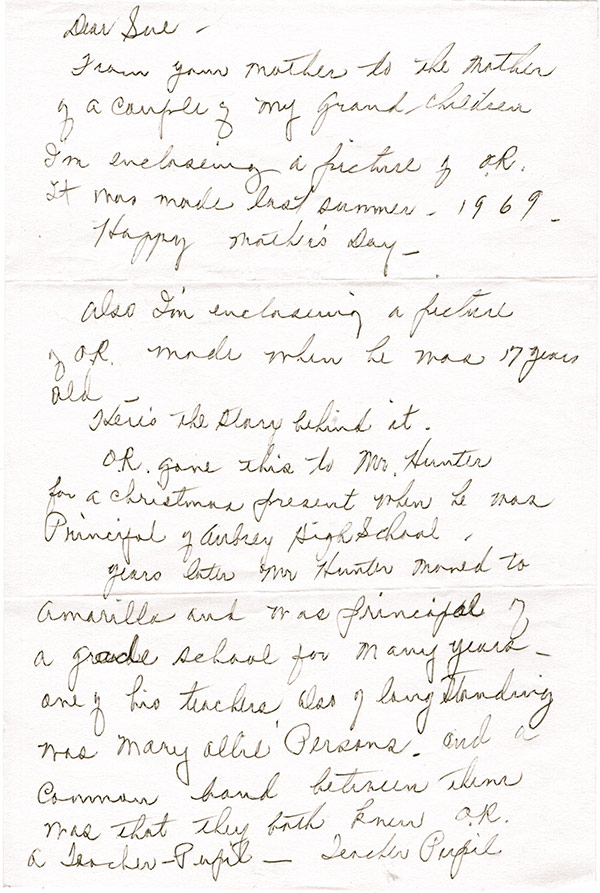 Dear Sue -
From your mother to the mother
of a couple of my Grand-children
I'm enclosing a picture of O.R.
It was made last summer - 1969 -
Happy Mother's Day -
Also I'm enclosing a picture
of O.R. made when he was 17 years
old -
Here's the story behind it.
O.R. gave this to Mr. Hunter
for a Christmas present when he was
Principal of Aubrey High School.
years later Mr Hunter moved to
Amarillo and was principal of
a grade school for many years -
one of his teachers, also of long standing
was Mary Allie Persons - and a
Common bond between them
was that they both knew O.R.
a Teacher-Pupil - Teacher Pupil